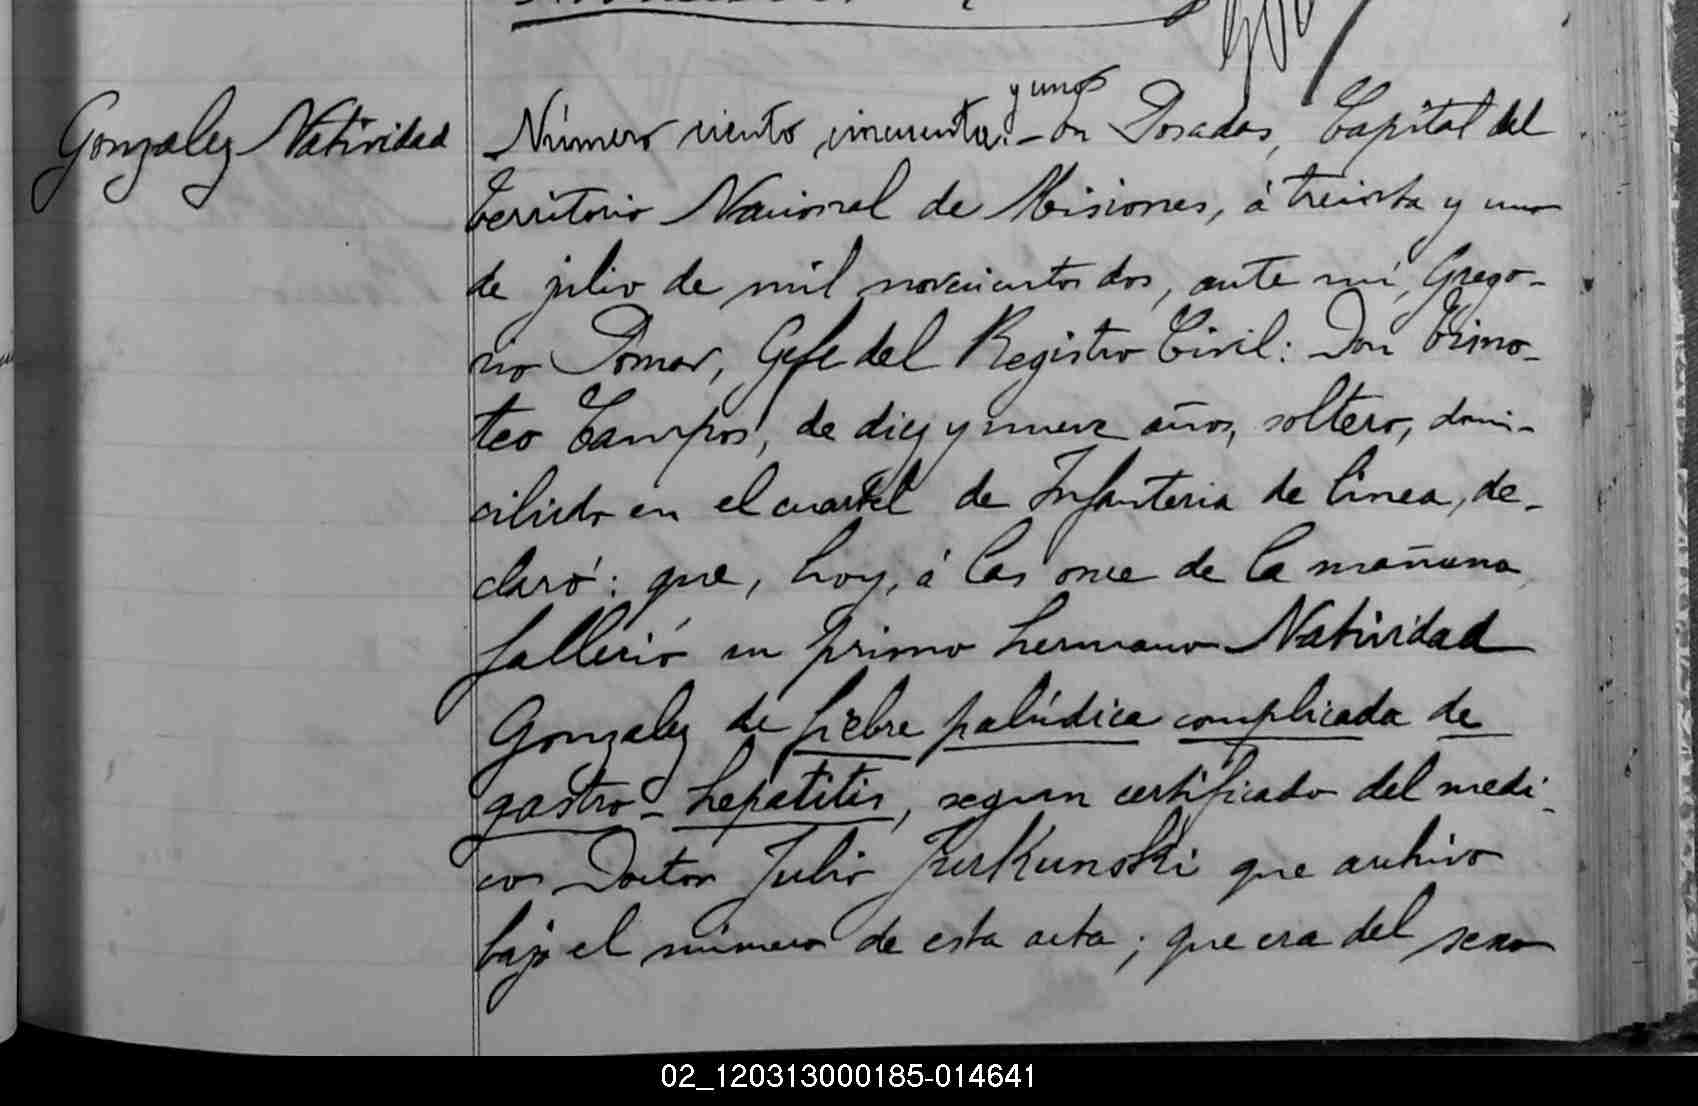 Gonzalez Natividad
y uno
Número ciento cincuenta. - en Posadas, Capital del
territorio Nacional de Misiones, á treinta y uno
de julio de mil novecientos dos, ante mí, Grego-
rio Pomar, Gefe del Registro Civil: Don Timo-
teo Campos, de diez y nueve años, soltero, domi-
ciliado en el cuartel de Infanteria de linea, de-
claró: que, hoy, á las once de la mañana
falleció su primo hermano Natividad
Gonzalez de fiebre palúdica complicada de
gastro-hepatitis, segun certificado del medi-
co Doctor Julio que archivo
bajo el número de esta acta; que era del sexo
02_120313000185-014641